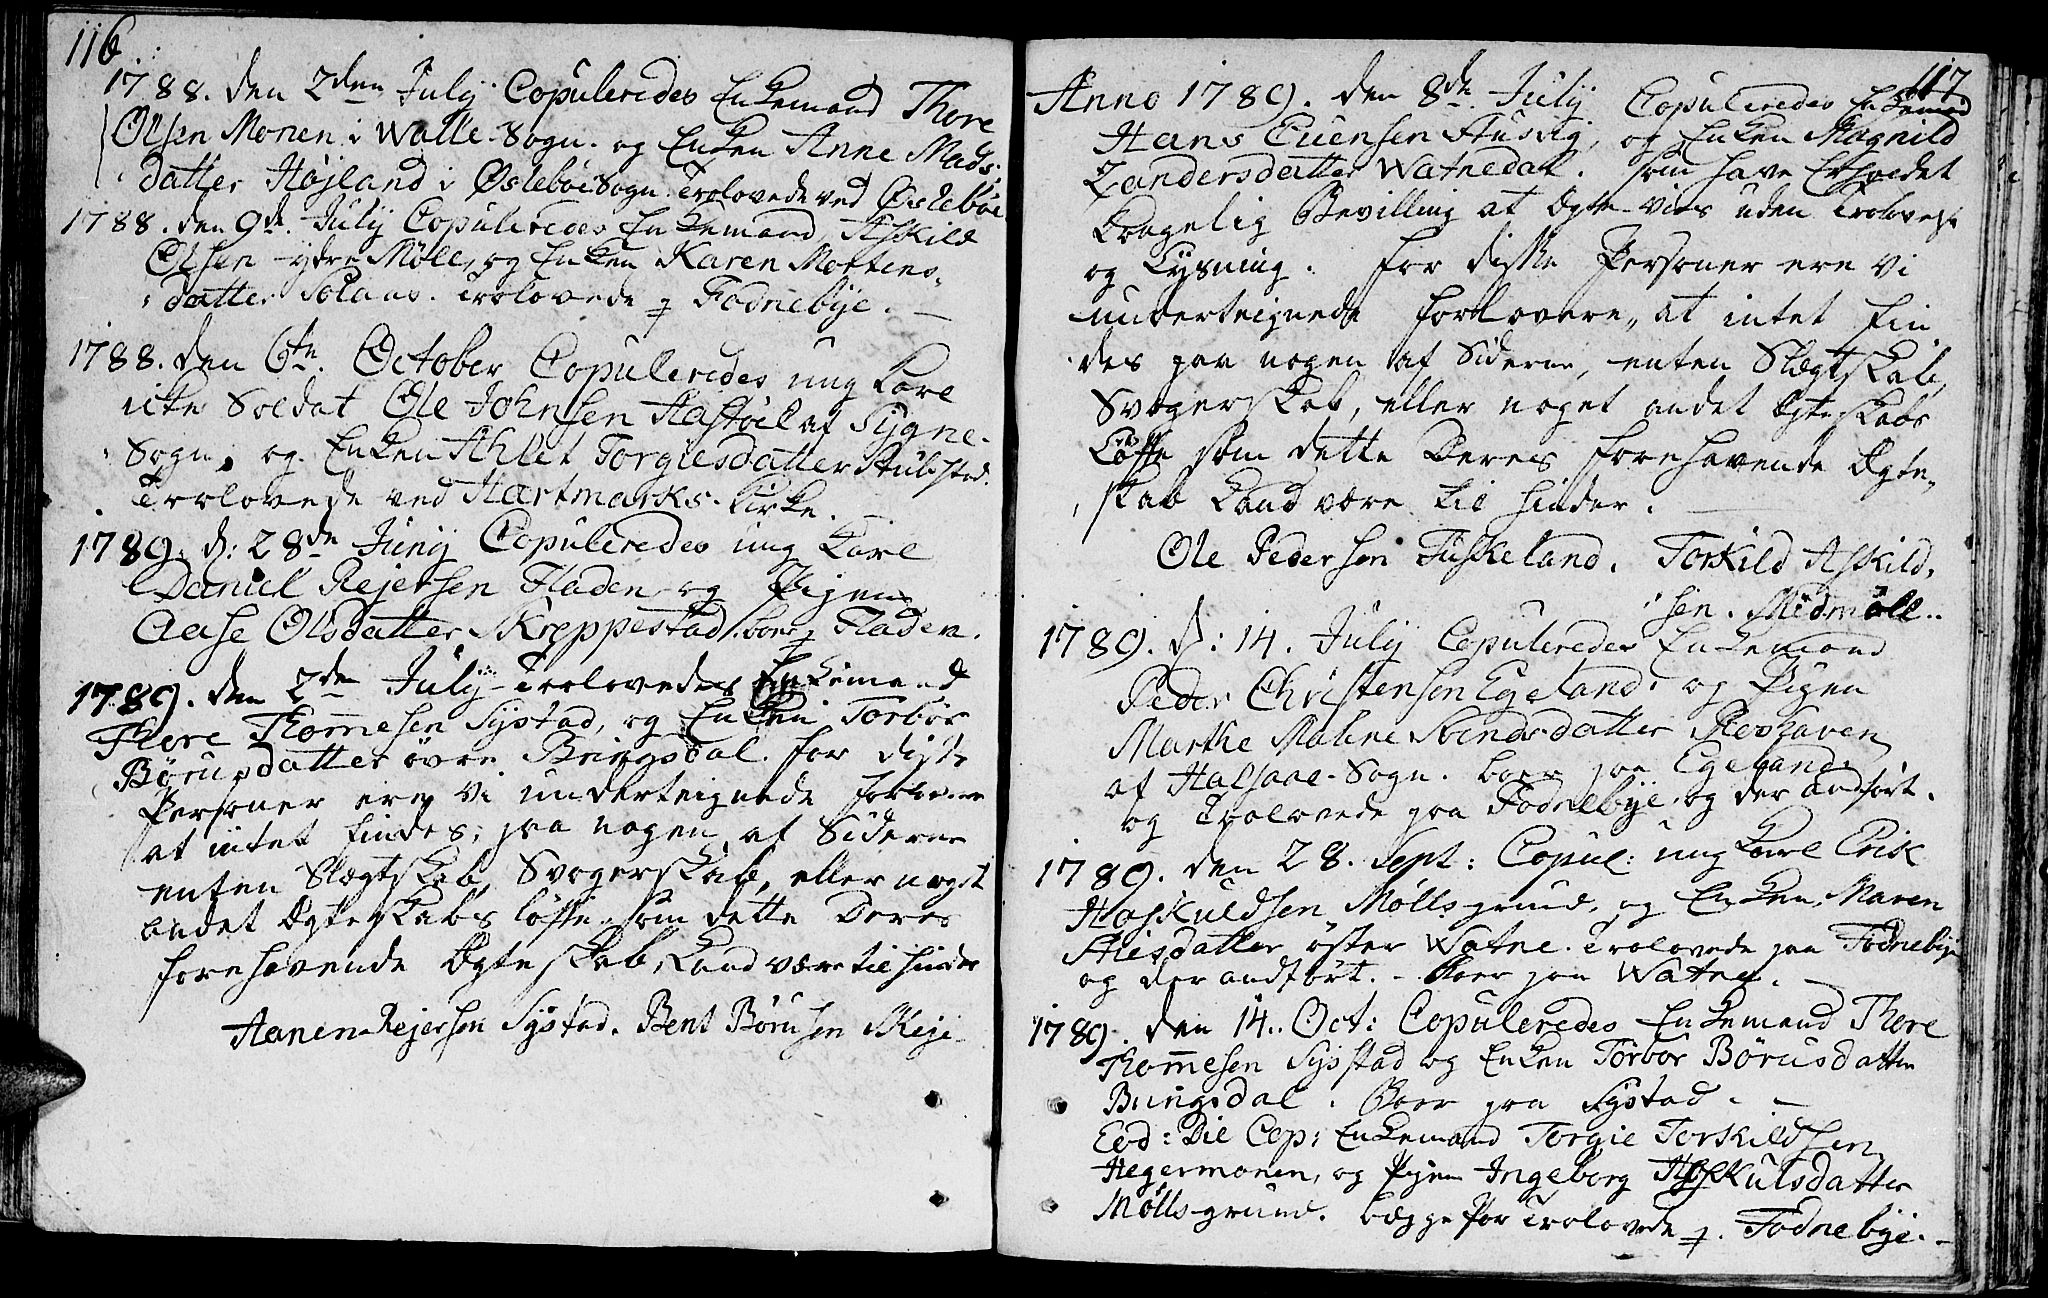 116.
1788. den 2den July Copuleredes Enkemand Thore
Olsen Monen i Walle-Sogn. og Enken Anne Mads-
datter Højland i Øslebøe Sogn. Trolovede ved Øslebøe
1788. den 9de. July Copuleredes Enkemand Askild
Olsen ydre Møll, og Enken Karen Mortens-
datter Solaas. Trolovede p Fodnebye.
1788. den 6te. October Copuleredes ung Karl
Soldat Ole Johnsen Hastøel af Sygne-
Sogn, og Enken Ahlet Torgiesdatter Stubstad.
Trolovede ved Hartmarks-Kirke.
1789. d: 28de Junij Copuleredes ung Karl
Daniel Rejersen Fladen og Pigen
Aase Olsdatter Skreppestad. boer p Fladen.
1789. den 2den July Trolovedes Enkemand
Thore Thommesen Systad, og Enken Torbor
Børusdatter øvre Bringsdal. for disse
Personer ere vi underteignede forlovere
at intet findes, paa nogen af Siderne
enten Slægtskab, Svogerskab, eller noget
andet Ægteskabs løffte som dette Deres
forehavende Ægteskab, Kand være til hinder
Aanen Rejersen Systad. Bent Børusen Skeje
117
Anno 1789. den 8de. July Copuleredes Enkemand
Hans Evensen Stusvig, og Enken Magnild
Zandersdatter Watnedal. som have Erholdet
Kongelig Bevilling at Ægte-vies uden Trolovelse
og Lysning. for disse Personer ere vi
underteignede forlovere, at intet fin
des paa nogen af Siderne, enten Slægtskab,
Svogerskab, eller noget andet Ægteskabs
Løffte som dette Deres forehavende Ægte-
skab Kand være til hinder.
Ole Pedersen Fuskeland. Torkild Askild-
sen. Midmøll..
1789. d: 14. July Copuleredes Enkemand
Peder Christensen Egeland, og Pigen
Marthe Maline Svendsdatter Reshaven
af Halsaae-Sogn. boer paa Egeland,
og Trolovede paa Fodnebye, og der andført.
1789. den 28. Sept: Copul: ung Karl Erik
Haskuldsen Mølls-grund, og Enken Maren
Stiesdatter øster Watne. Trolovede paa Fodnebye
og der andført. - Boer paa Watne.
1789. den 14. Oct: Copuleredes Enkemand Thore
Thommesen Sysstad og Enken Torbor Børusdatter
Bringsdal. Boer paa Systad.
Eod: Die Cop: Enkemand Torgie Torskildsen
Hegermonen, og Pigen Ingeborg Haskulsdatter
Mølls-grund. bægge Par Trolovede p. Fodnebye.